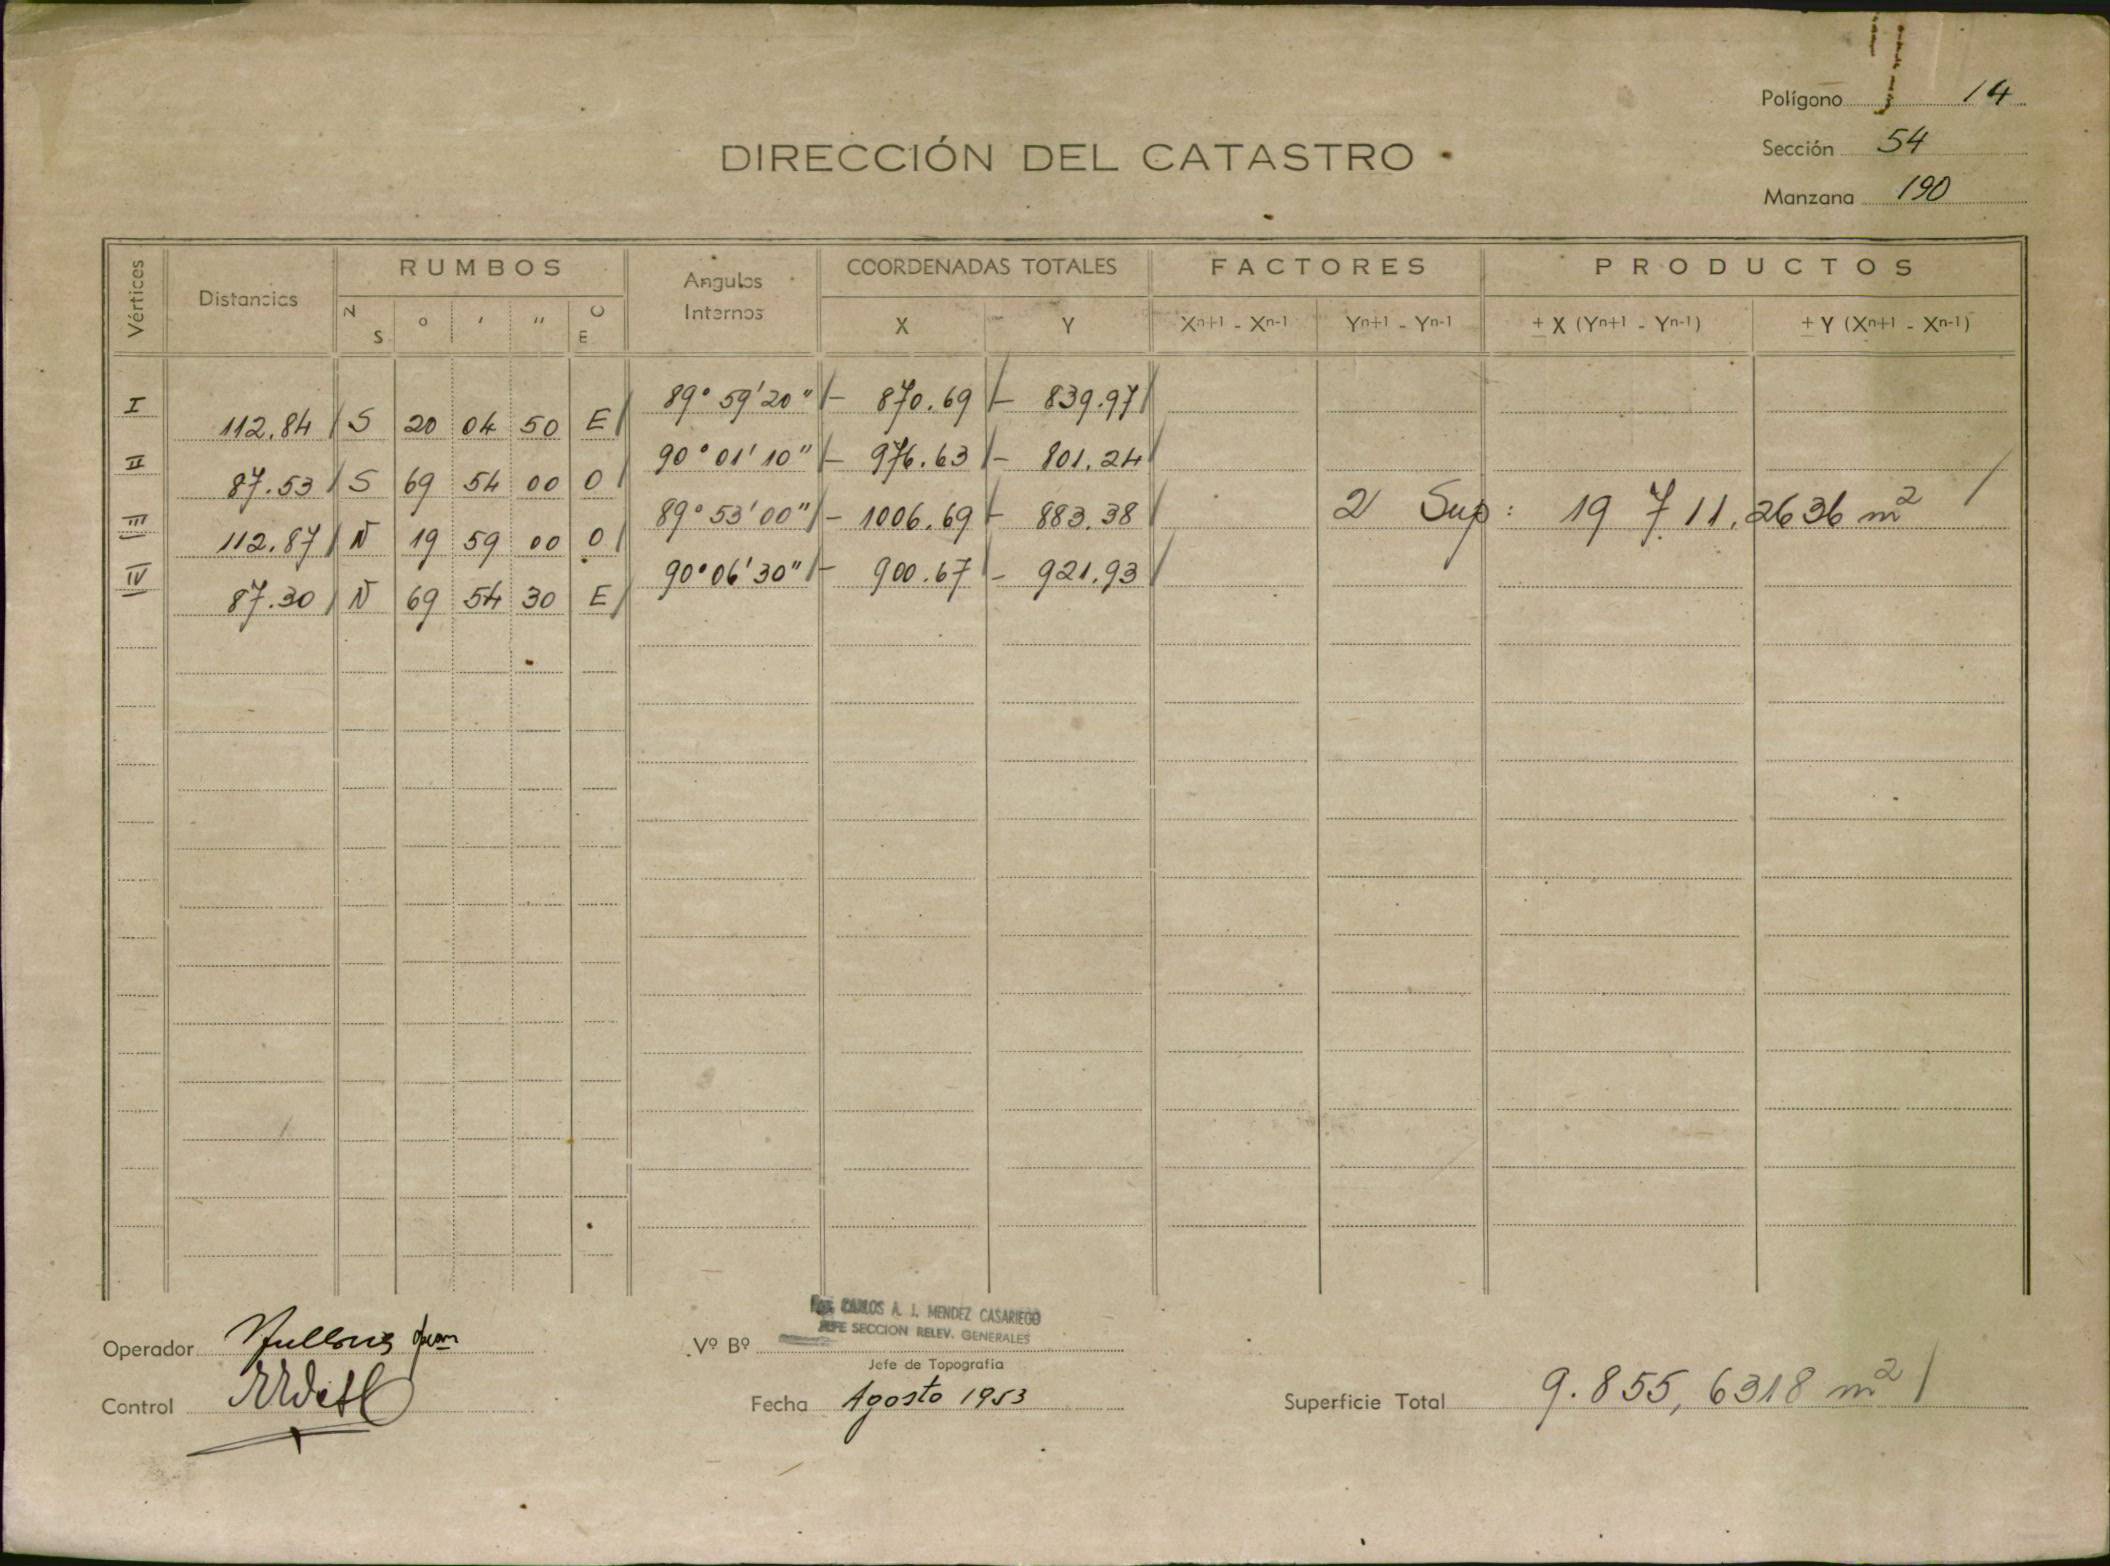 Polígono 14
DIRECCIÓN DEL CATASTRO
Sección 54
Manzana 190
Vértices Distancias RUMBOS Angulos Internos COORDENADAS TOTALES FACTORES PRODUCTOS
N S o ' " O E X Y Xn+1 - Xn-1 Yn+1 - Yn-1 ± X (Yn+1 - Yn-1) ± Y (Xn+1 - Xn-1)
I 89° 59' 20" / - 870.69 / - 839.97 /
112.84 / S 20 04 50 E /
II 90° 01' 10" / - 976.63 / - 801.24 /
87.53 / S 69 54 00 O /
III 89° 53' 00" / - 1006.69 / - 883.38 / 2 Sup: 19 711,2636 m² /
112.87 / N 19 59 00 O /
IV 90° 06' 30" / - 900.67 / - 921.93 /
87.30 / N 69 54 30 E /
CARLOS A. J. MENDEZ CASARIEGO
JEFE SECCION RELEV. GENERALES
Operador Juan
Vº Bº
Jefe de Topografía
Control
Fecha Agosto 1953
Superficie Total 9.855,6318 m² /